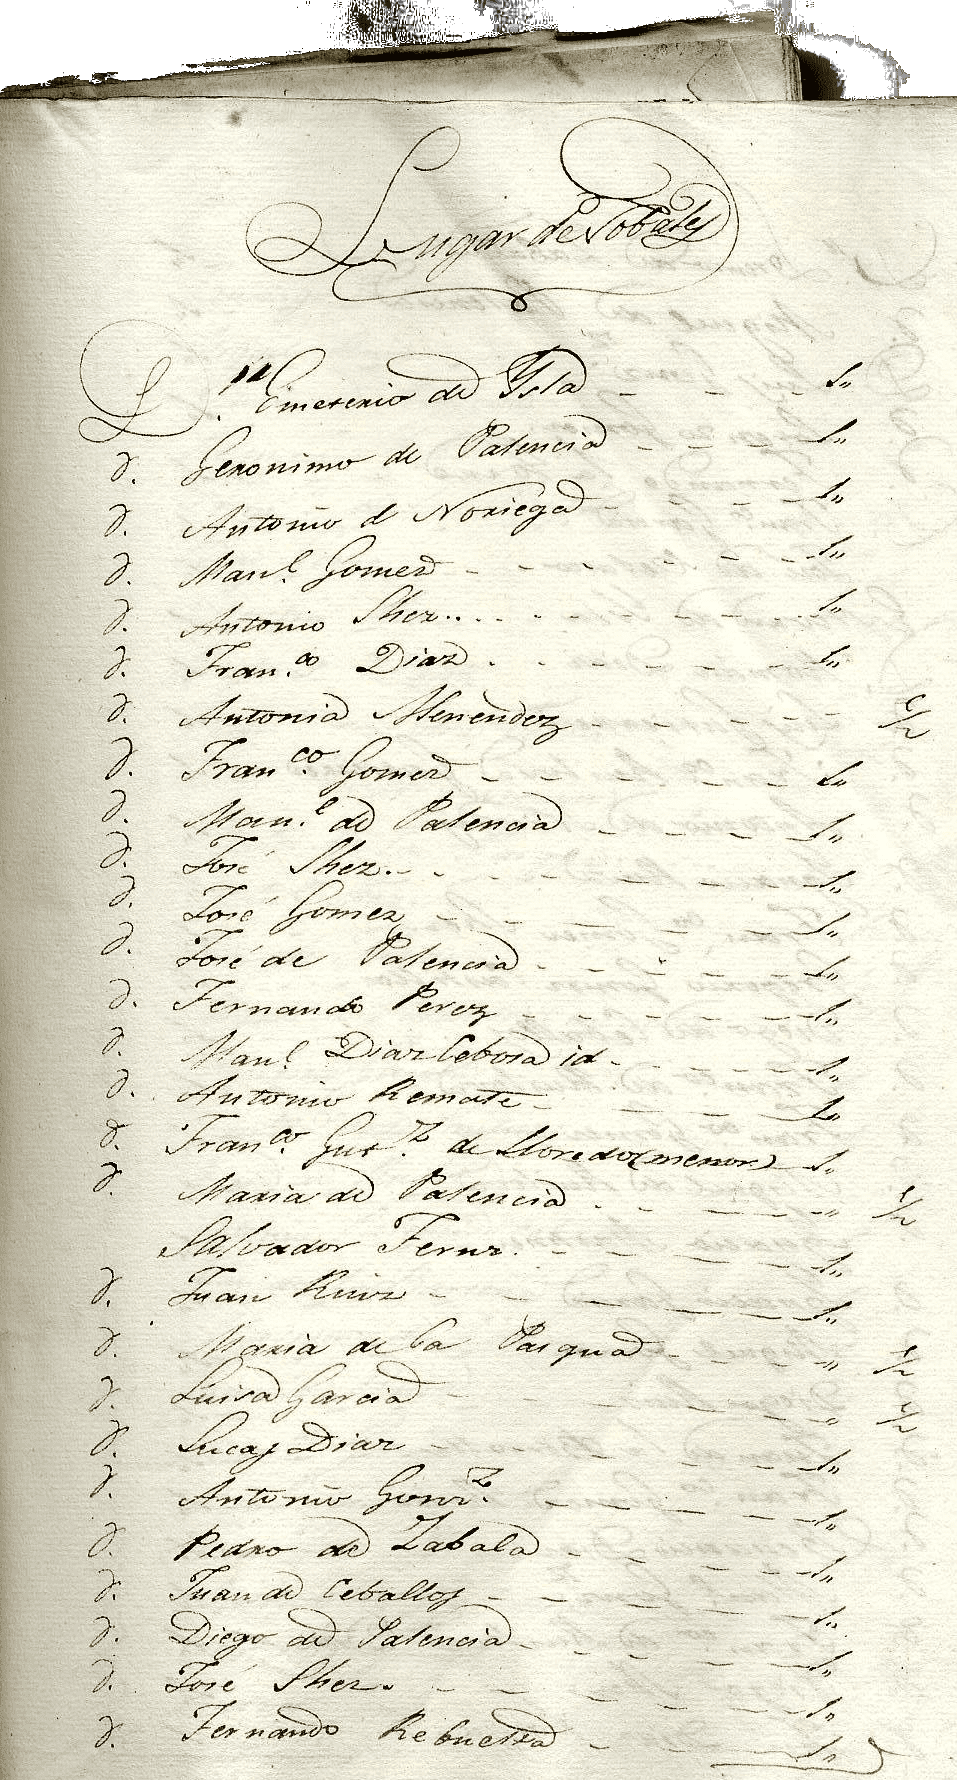 Lugar de Pobales
D.n Emeterio de Ysla - - - 1,,
d. Geronimo de Palencia - - - 1,,
d. Antonio d Noriega - - - 1,,
d. Man.l Gomez - - - - - - 1,,
d. Antonio Shez. - - - - - - 1,,
d. Fran.co Diaz - - - - - - 1,,
d. Antonia Menendez - - - - - - 1/2
d. Fran.co Gomez - - - - - - 1,,
d. Man.l de Palencia - - - - 1,,
d. José Shez. - - - - - - 1,,
d. José Gomez - - - - - - 1,,
d. José de Palencia - - - - - 1,,
d. Fernando Perez - - - - - 1,,
d. Man.l Diaz Cebosa id - - - - 1,,
d. Antonio Remate - - - - 1,,
d. Fran.co Gut.z de Lloredo (menor) 1,,
d. Maria de Palencia - - - - ,, 1/2
Salvador Fernz. - - - - - 1,,
d. Juan Ruiz - - - - - 1,,
d. Maria de la Pasqua - - - ,, 1/2
d. Luisa Garcia - - - - ,, 1/2
d. Lucas Diaz - - - - - 1,,
d. Antonio Gonz.z - - - - 1,,
d. Pedro de Zabala - - - - 1,,
d. Juan de Ceballos - - - - 1,,
d. Diego de Palencia - - - - 1,,
d. José Shez. - - - - - 1,,
d. Fernando Rebuelta - - - 1,,